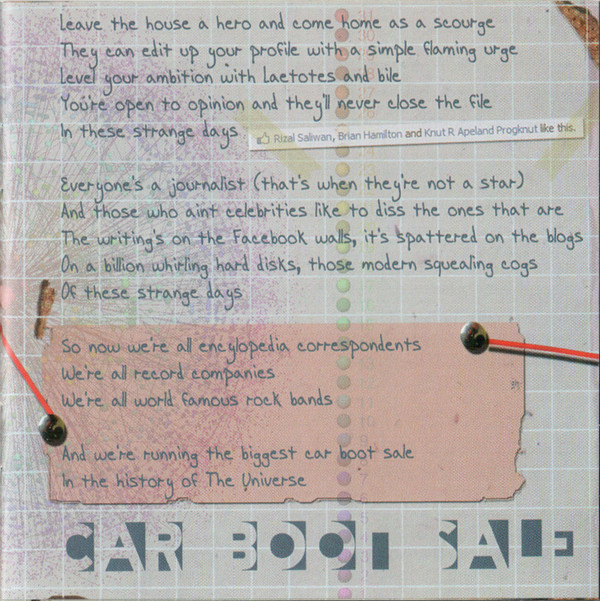 Leave the house a hero and come home as a scourge
They can edit up your profile with a simple flaming urge
Level your ambition with Laetotes and bile
You're open to opinion and they'll never close the file
In these strange days
Rizal Saliwan, Brian Hamilton and Knut R Apeland Progknut like this.
Everyone's a journalist (that's when they're not a star)
And those who aint celebrities like to diss the ones that are
The writing's on the Facebook walls, it's spattered on the blogs
On a billion whirling hard disks, those modern squealing cogs
Of these strange days
So now we're all encylopedia correspondents
We're all record companies
We're all world famous rock bands
And we're running the biggest car boot sale
In the history of The Universe
CAR BOOT SALE